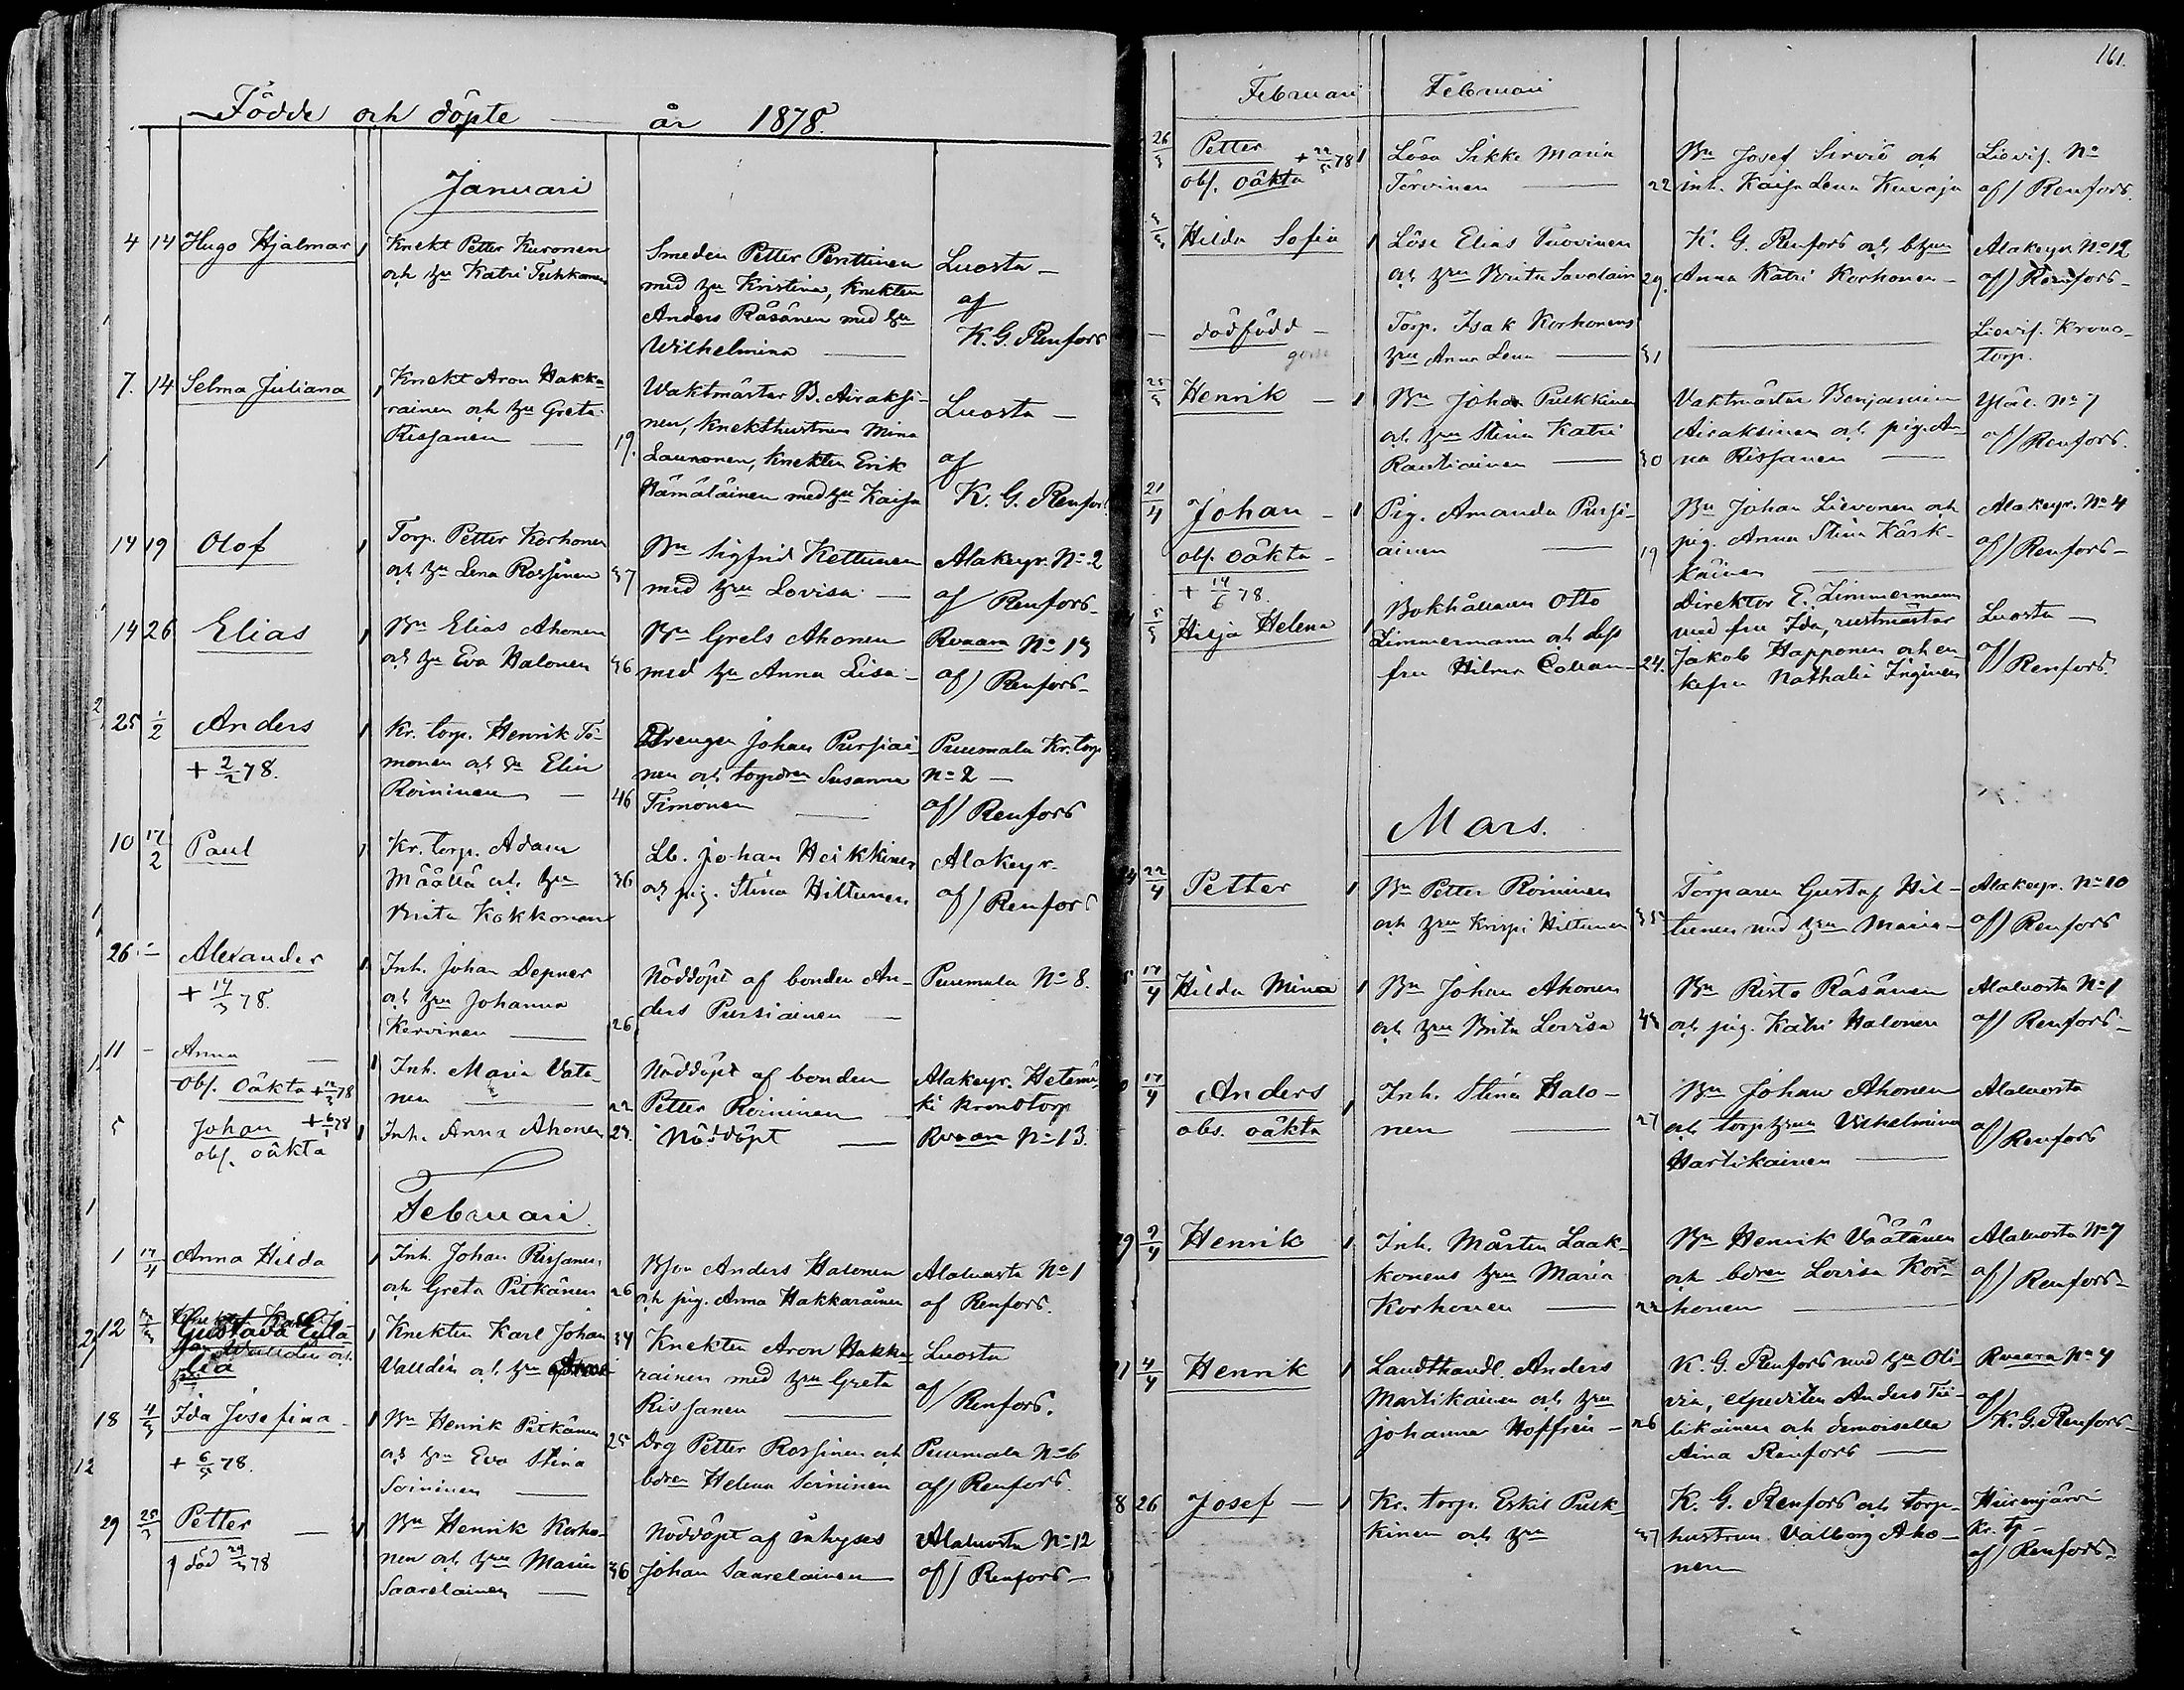 Födde och döpte år 1878.
Januari
4 14 Hugo Hjalmar 1 Knekt Petter Kuronen
och hu Katri Tuhkanen
Smeden Petter Penttinen
med hu Kristina, knekten
Anders Räsänen med hu
Wilhelmina
Luosta
af
K. G. Renfors
7. 14 Selma Juliana 1 Knekt Aron Hakka-
rainen och hu Greta
Rissanen 19.
Waktmäster B. Airaksi-
nen, knekthustrun Mina
Launonen, knekten Erik
Hämäläinen med hu Kaisa
Luosta
af
K. G. Renfors
14 19 Olof 1 Torp. Petter Korhonen
och hu Lena Rossinen 37
Bn Sigfrid Kettunen
med hu Lovisa
Alakeyr. No 2
af Renfors
14 26 Elias 1 Bn Elias Ahonen
och hu Eva Halonen 36
Bn Grels Ahonen
med hu Anna Lisa
Rvaara No 13
af Renfors
25 1/2 Anders 1
+ 2/2 78.
Kr. torp. Henrik Ti-
monen och hu Elin
Roininen 46
Drengen Johan Pursiai-
nen och torpdren Susanna
Timonen
Puumala Kr. torp
No 2
af Renfors
10 17/2 Paul 1 Kr. torp. Adam
Määttä och hu 36
Brita Kokkonen
Lb. Johan Heikkinen
och pig. Stina Hiltunen
Alakeyr.
af Renfors
26 Alexander 1
+ 17/3 78.
Inh. Johan Depner
och hu Johanna
Kervinen 26
Nöddöpt af bonden An-
ders Pursiainen
Puumala No 8.
11 - Anna 1
obs. oäkta + 12/3 78
Inh. Maria Vata-
nen 22
Nöddöpt af bonden
Petter Roininen
Alakeyr. Hetemä-
ki Kronotorp
5 Johan + 6/1 78 1
obs. oäkta
Inh. Anna Ahonen 27.
Nöddöpt
Rvaara No 13
Februari
1 14/4 Anna Hilda 1 Inh. Johan Rissanen
och Greta Pitkänen 26
Bson Anders Halonen
och pig. Anna Hakkarainen
Alaluosta No 1
af Renfors.
12 Gustava Eula-
lia
1 Knekten Karl Johan 34
Valldén och hu
Knekten Aron Hakka-
rainen med hu Greta
Rissanen
Luosta
af Renfors.
18 4/3 Ida Josefina 1
+ 6/5 78.
Bn Henrik Pitkänen 25
och hu Eva Stina
Soininen
Drg Petter Rossinen och
bdren Helena Soininen
Puumala No 6
af Renfors.
29 25/3 Petter 1
död 29/3 78
Bn Henrik Korho-
nen och hu Maria 36
Saarelainen
Nöddöpt af inhyses
Johan Saarelainen
Alaluosta No 12
af Renfors
161.
Februari Februari
26/3 Petter + 22/5 78 1
obs. oäkta
Lösa Sikke Maria
Törvinen 22
Bn Josef Sirviö och
inh. Kaisa Lena Kuvaja
Lievis. No
af Renfors.
Hilda Sofia 1 Löse Elias Tuovinen
och hu Brita Savolain 29.
K. G. Renfors och bhu
Anna Katri Korhonen
Alakeyr. No 12
af Renfors
dödfödd
gosse
Torp. Isak Korhonens
hu Anna Lena 31
Lievis. Krono-
torp.
25/3 Henrik 1 Bn Johan Pulkkinen
och hu Stina Katri
Rautiainen 30
Vaktmäster Benjamin
Airaksinen och pig. An-
na Rissanen
No 7
af Renfors.
21/4 Johan 1
obs. oäkta
+ 14/6 78.
Pig. Amanda Pursi-
ainen 19
Bn Johan Lievonen och
pig. Anna Stina Kärk-
käinen
Alakeyr. No 4
af Renfors
5/3 Hilja Helena 1 Bokhållaren Otto
Zimmermann och dess
fru Hilma Collan 24.
Direktor E. Zimmermann
med fru Ida, rustmästar
Jakob Happonen och en-
kefru Nathalia Inginen
Luosta
af Renfors.
Mars.
22/4 Petter 1 Bn Petter Roininen
och hu Krisse Hiltunen 35
Torparen Gustaf Hil-
tunen med hu Maria
Alakeyr. No 10
af Renfors
17/4 Hilda Mina 1 Bn Johan Ahonen
och hu Brita Lovisa 43
Bn Risto Räsänen
och pig. Katri Halonen
Alaluosta No 1
af Renfors
17/4 Anders 1
obs. oäkta
Inh. Stina Halo-
nen 27
Bn Johan Ahonen
och torphun Vilhelmina
Hartikainen
Alaluosta
af Renfors
29 7/4 Henrik 1 Inh. Mårten Laak-
konens hu Maria
Korhonen 22
Bn Henrik Väätänen
och bdren Lovisa Kor-
honen
Alaluosta No 7
af Renfors
21 4/4 Henrik 1 Landthandl. Anders
Martikainen och hu
Johanna Hoffrén 26
K. G. Renfors med hu Oli-
via, expediten Anders Tii-
likainen och demoisella
Aina Renfors
Rvaara No 4
af
K. G. Renfors
8 26 Josef 1 Kr. torp. Eskil Pulk-
kinen och hu 37
K. G. Renfors och torp-
hustrun Valborg Aho-
nen
Hiirenjärvi
Kr. tp
af Renfors